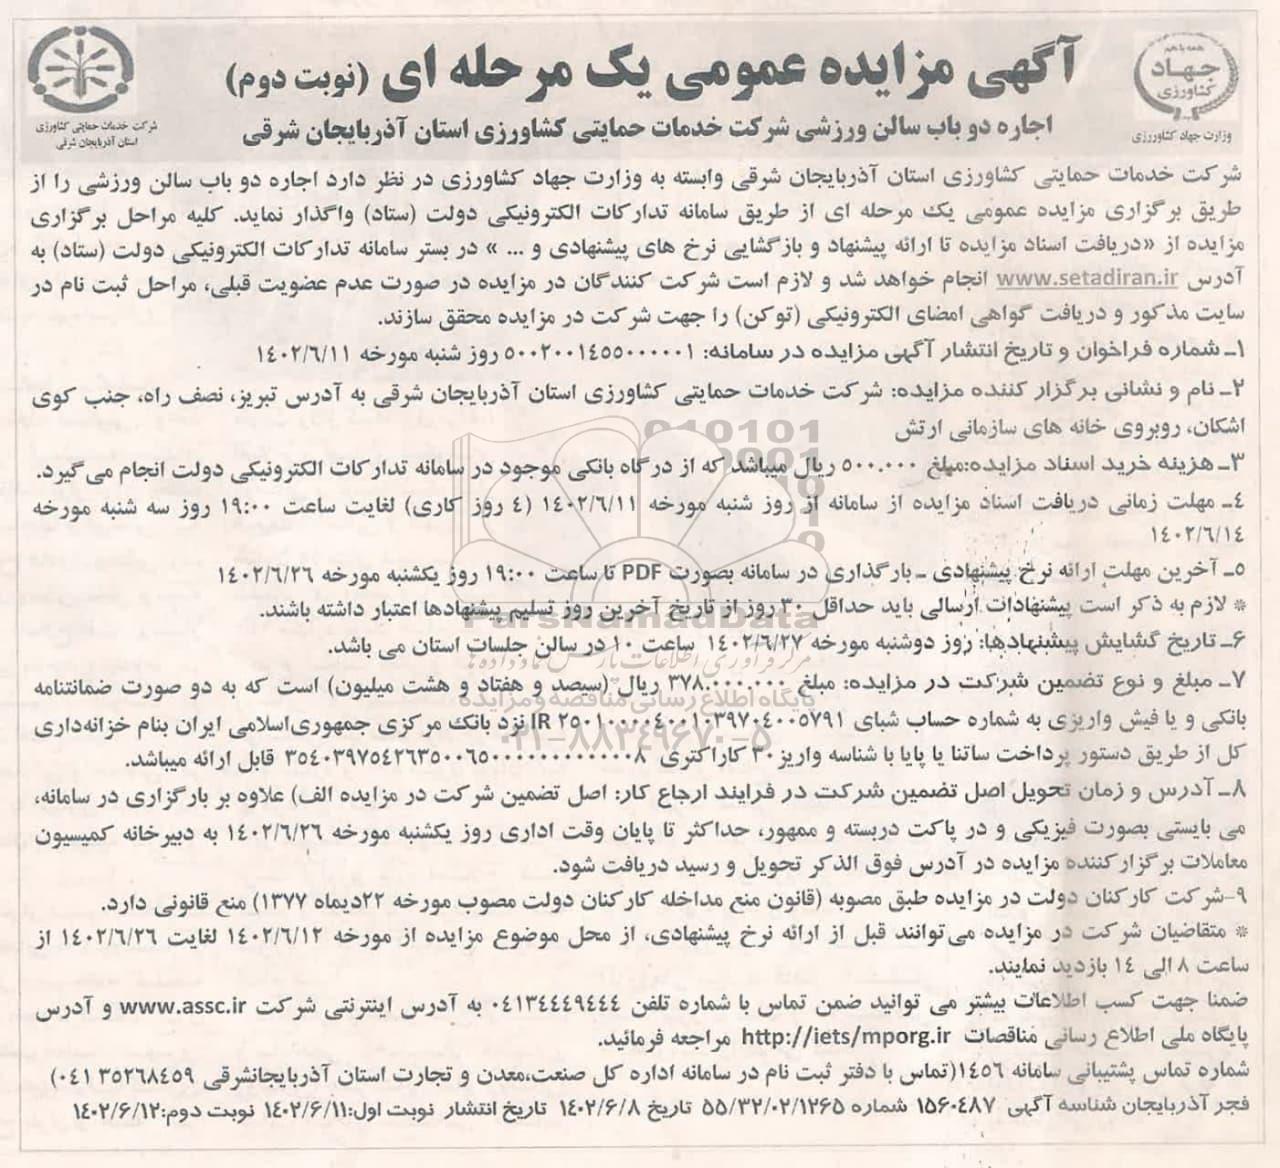 آگهی مزایده عمومی یک مرحله ای (نوبت دوم)
اجاره دو باب سالن ورزشی شرکت خدمات حمایتی کشاورزی استان آذربایجان شرقی
همه با هم
جهاد
کشاورزی
وزارت جهاد کشاورزی
شرکت خدمات حمایتی کشاورزی
استان آذربایجان شرقی
شرکت خدمات حمایتی کشاورزی استان آذربایجان شرقی وابسته به وزارت جهاد کشاورزی در نظر دارد اجاره دو باب سالن ورزشی را از
طریق برگزاری مزایده عمومی یک مرحله ای از طریق سامانه تدارکات الکترونیکی دولت (ستاد) واگذار نماید. کلیه مراحل برگزاری
مزایده از «دریافت اسناد مزایده تا ارائه پیشنهاد و بازگشایی نرخ های پیشنهادی و ... » در بستر سامانه تدارکات الکترونیکی دولت (ستاد) به
آدرس www.setadiran.ir انجام خواهد شد و لازم است شرکت کنندگان در مزایده در صورت عدم عضویت قبلی، مراحل ثبت نام در
سایت مذکور و دریافت گواهی امضای الکترونیکی (توکن) را جهت شرکت در مزایده محقق سازند.
۱ـ شماره فراخوان و تاریخ انتشار آگهی مزایده در سامانه: ۵۰۰۲۰۰۱۴۵۵۰۰۰۰۰۱ روز شنبه مورخه ۱۴۰۲/۶/۱۱
۲ـ نام و نشانی برگزار کننده مزایده: شرکت خدمات حمایتی کشاورزی استان آذربایجان شرقی به آدرس تبریز، نصف راه، جنب کوی
اشکان، روبروی خانه های سازمانی ارتش
۳ـ هزینه خرید اسناد مزایده:مبلغ ۵۰۰.۰۰۰ ریال میباشد که از درگاه بانکی موجود در سامانه تدارکات الکترونیکی دولت انجام می گیرد.
۴ـ مهلت زمانی دریافت اسناد مزایده از سامانه از روز شنبه مورخه ۱۴۰۲/۶/۱۱ (۴ روز کاری) لغایت ساعت ۱۹:۰۰ روز سه شنبه مورخه
۱۴۰۲/۶/۱۴
۵ـ آخرین مهلت ارائه نرخ پیشنهادی ـ بارگذاری در سامانه بصورت PDF تا ساعت ۱۹:۰۰ روز یکشنبه مورخه ۱۴۰۲/۶/۲۶
* لازم به ذکر است پیشنهادات ارسالی باید حداقل ۳۰ روز از تاریخ آخرین روز تسلیم پیشنهادها اعتبار داشته باشند.
۶ـ تاریخ گشایش پیشنهادها: روز دوشنبه مورخه ۱۴۰۲/۶/۲۷ ساعت ۱۰ در سالن جلسات استان می باشد.
۷ـ مبلغ و نوع تضمین شرکت در مزایده: مبلغ ۳۷۸.۰۰۰۰.۰۰۰ ریال (سیصد و هفتاد و هشت میلیون) است که به دو صورت ضمانتنامه
بانکی و یا فیش واریزی به شماره حساب شبای IR ۲۵۰۱۰۰۰۰۴۰۰۱۰۳۹۷۰۴۰۰۵۷۹۱ نزد بانک مرکزی جمهوری‌اسلامی ایران بنام خزانه‌داری
کل از طریق دستور پرداخت ساتنا یا پایا با شناسه واریز۳۰ کاراکتری قابل ارائه میباشد.
۸ـ آدرس و زمان تحویل اصل تضمین شرکت در فرایند ارجاع کار: اصل تضمین شرکت در مزایده الف) علاوه بر بارگزاری در سامانه،
می بایستی بصورت فیزیکی و در پاکت دربسته و ممهور، حداکثر تا پایان وقت اداری روز یکشنبه مورخه ۱۴۰۲/۶/۲۶ به دبیرخانه کمیسیون
معاملات برگزارکننده مزایده در آدرس فوق الذکر تحویل و رسید دریافت شود.
۹-شرکت کارکنان دولت در مزایده طبق مصوبه (قانون منع مداخله کارکنان دولت مصوب مورخه ۲۲دیماه ۱۳۷۷) منع قانونی دارد.
* متقاضیان شرکت در مزایده می‌توانند قبل از ارائه نرخ پیشنهادی، از محل موضوع مزایده از مورخه ۱۴۰۲/۶/۱۲ لغایت ۱۴۰۲/۶/۲۶ از
ساعت ۸ الی ۱۴ بازدید نمایند.
ضمنا جهت کسب اطلاعات بیشتر می توانید ضمن تماس با شماره تلفن ۰۴۱۳۴۴۴۹۴۴۴ به آدرس اینترنتی شرکت www.assc.ir و آدرس
پایگاه ملی اطلاع رسانی مناقصات http://iets/mporg.ir مراجعه فرمائید.
شماره تماس پشتیبانی سامانه ۱۴۵۶(تماس با دفتر ثبت نام در سامانه اداره کل صنعت،معدن و تجارت استان آذربایجانشرقی ۳۵۲۶۸۴۵۹ ۰۴۱)
فجر آذربایجان شناسه آگهی ۱۵۶۰۴۸۷ شماره ۵۵/۳۲/۰۲/۱۲۶۵ تاریخ ۱۴۰۲/۶/۸ تاریخ انتشار نوبت اول:۱۴۰۲/۶/۱۱ نوبت دوم:۱۴۰۲/۶/۱۲
ParsNamadData
مرکز فرآوری اطلاعات پارس نماد داده ها
پایگاه اطلاع رسانی مناقصه و مزایده
۰۲۱-۸۸۳۴۹۶۷۰-۵